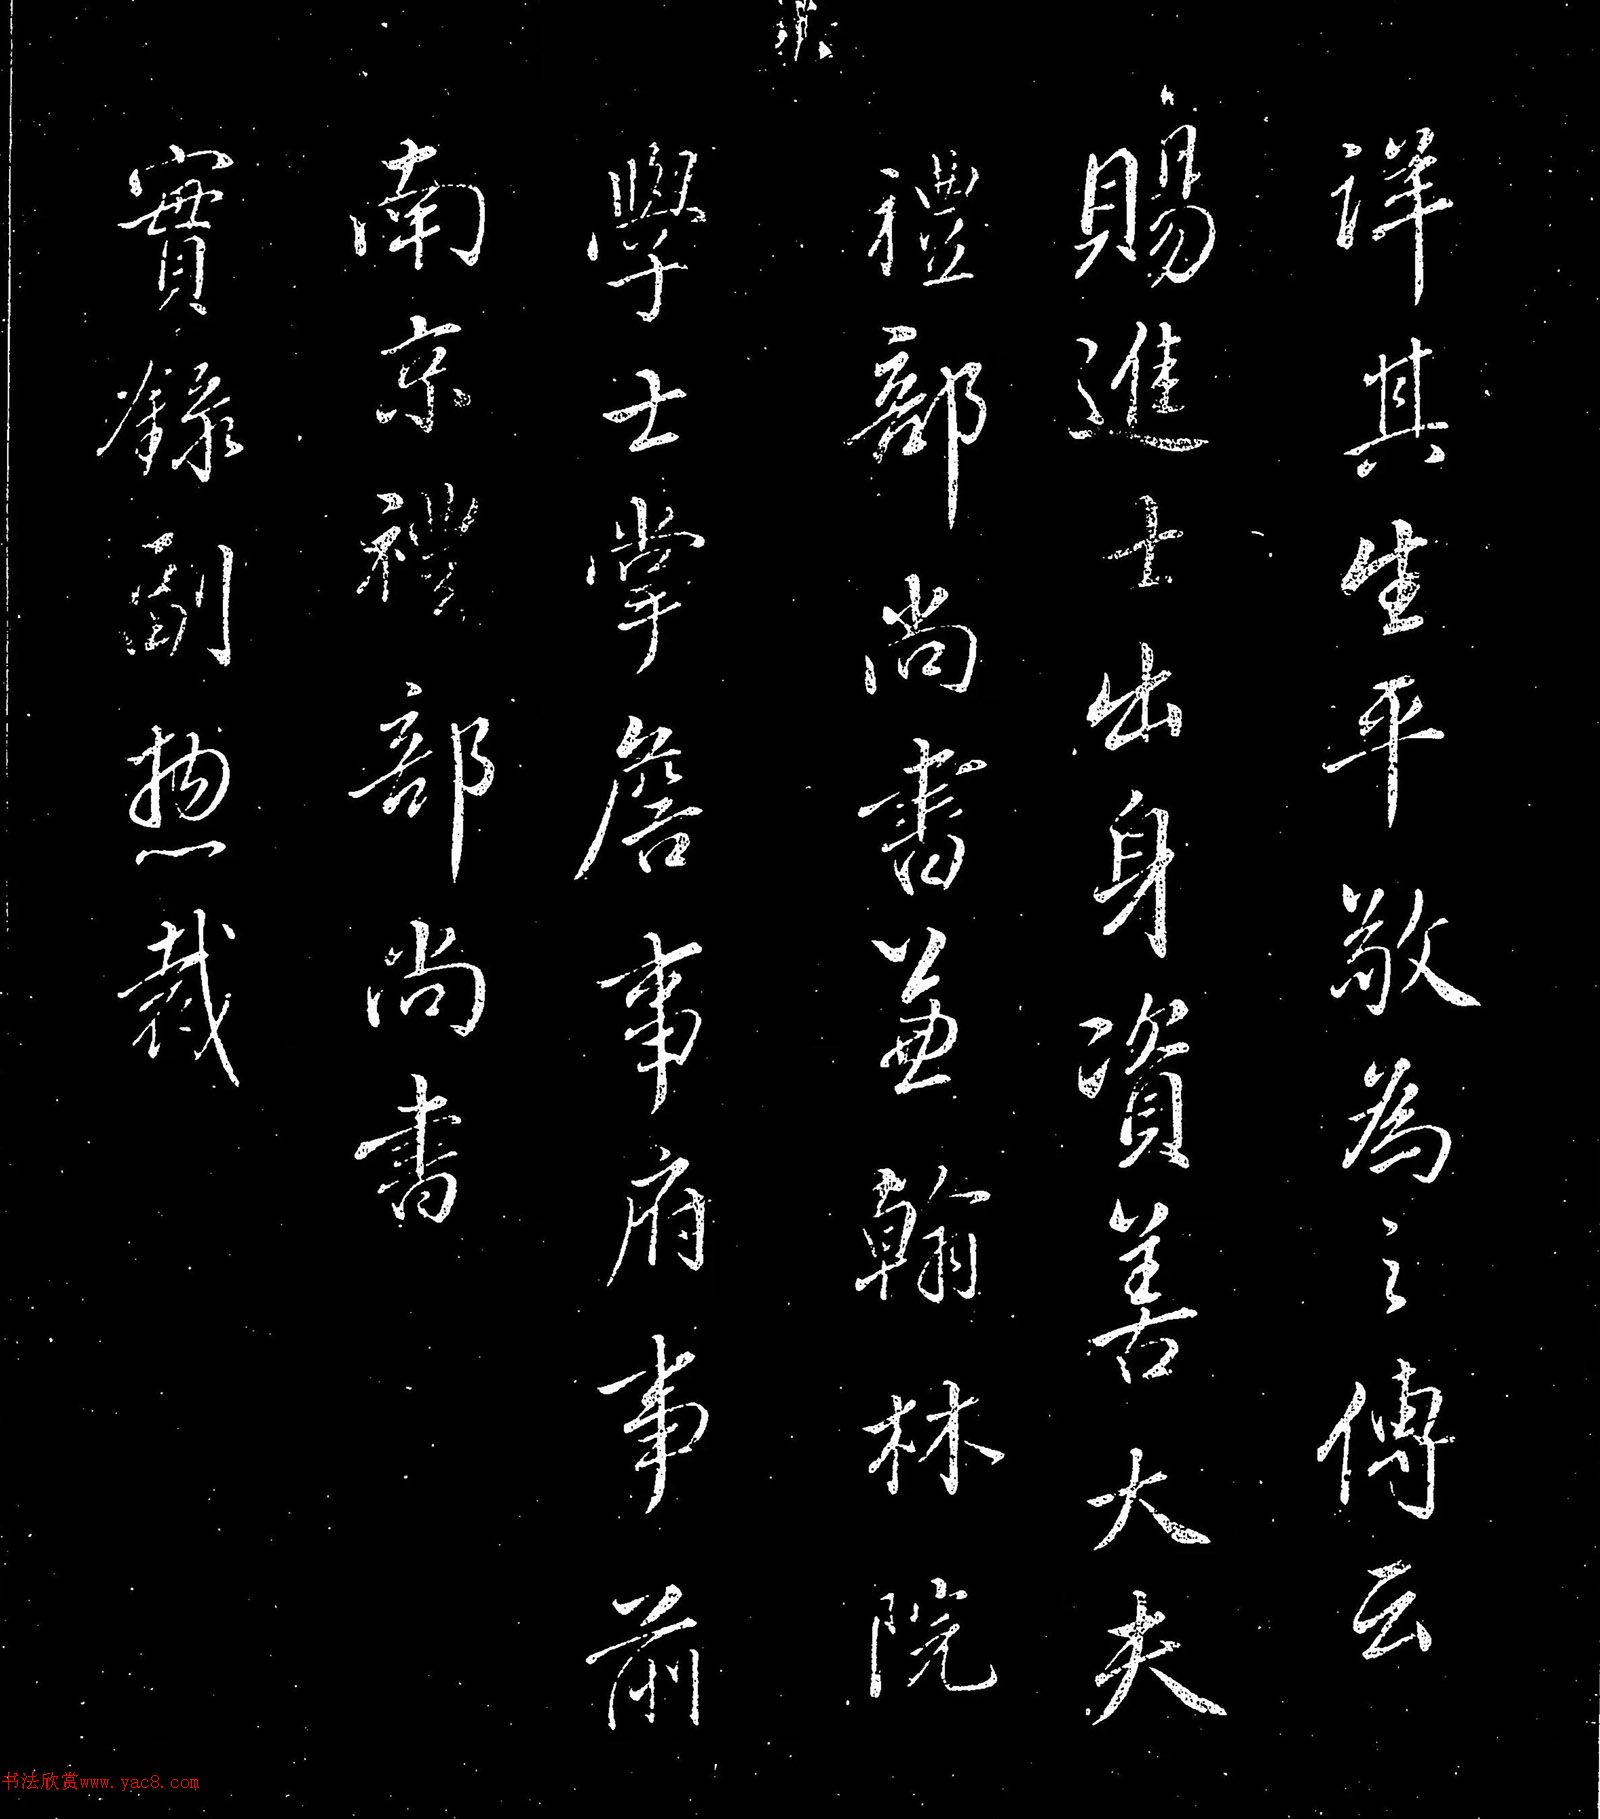 詳其生平敬為之傳云
賜進士出身資善大夫
禮部尚書兼翰林院
學士掌詹事府事前
南京禮部尚書
實錄副總裁
书法欣赏www.yac8.com